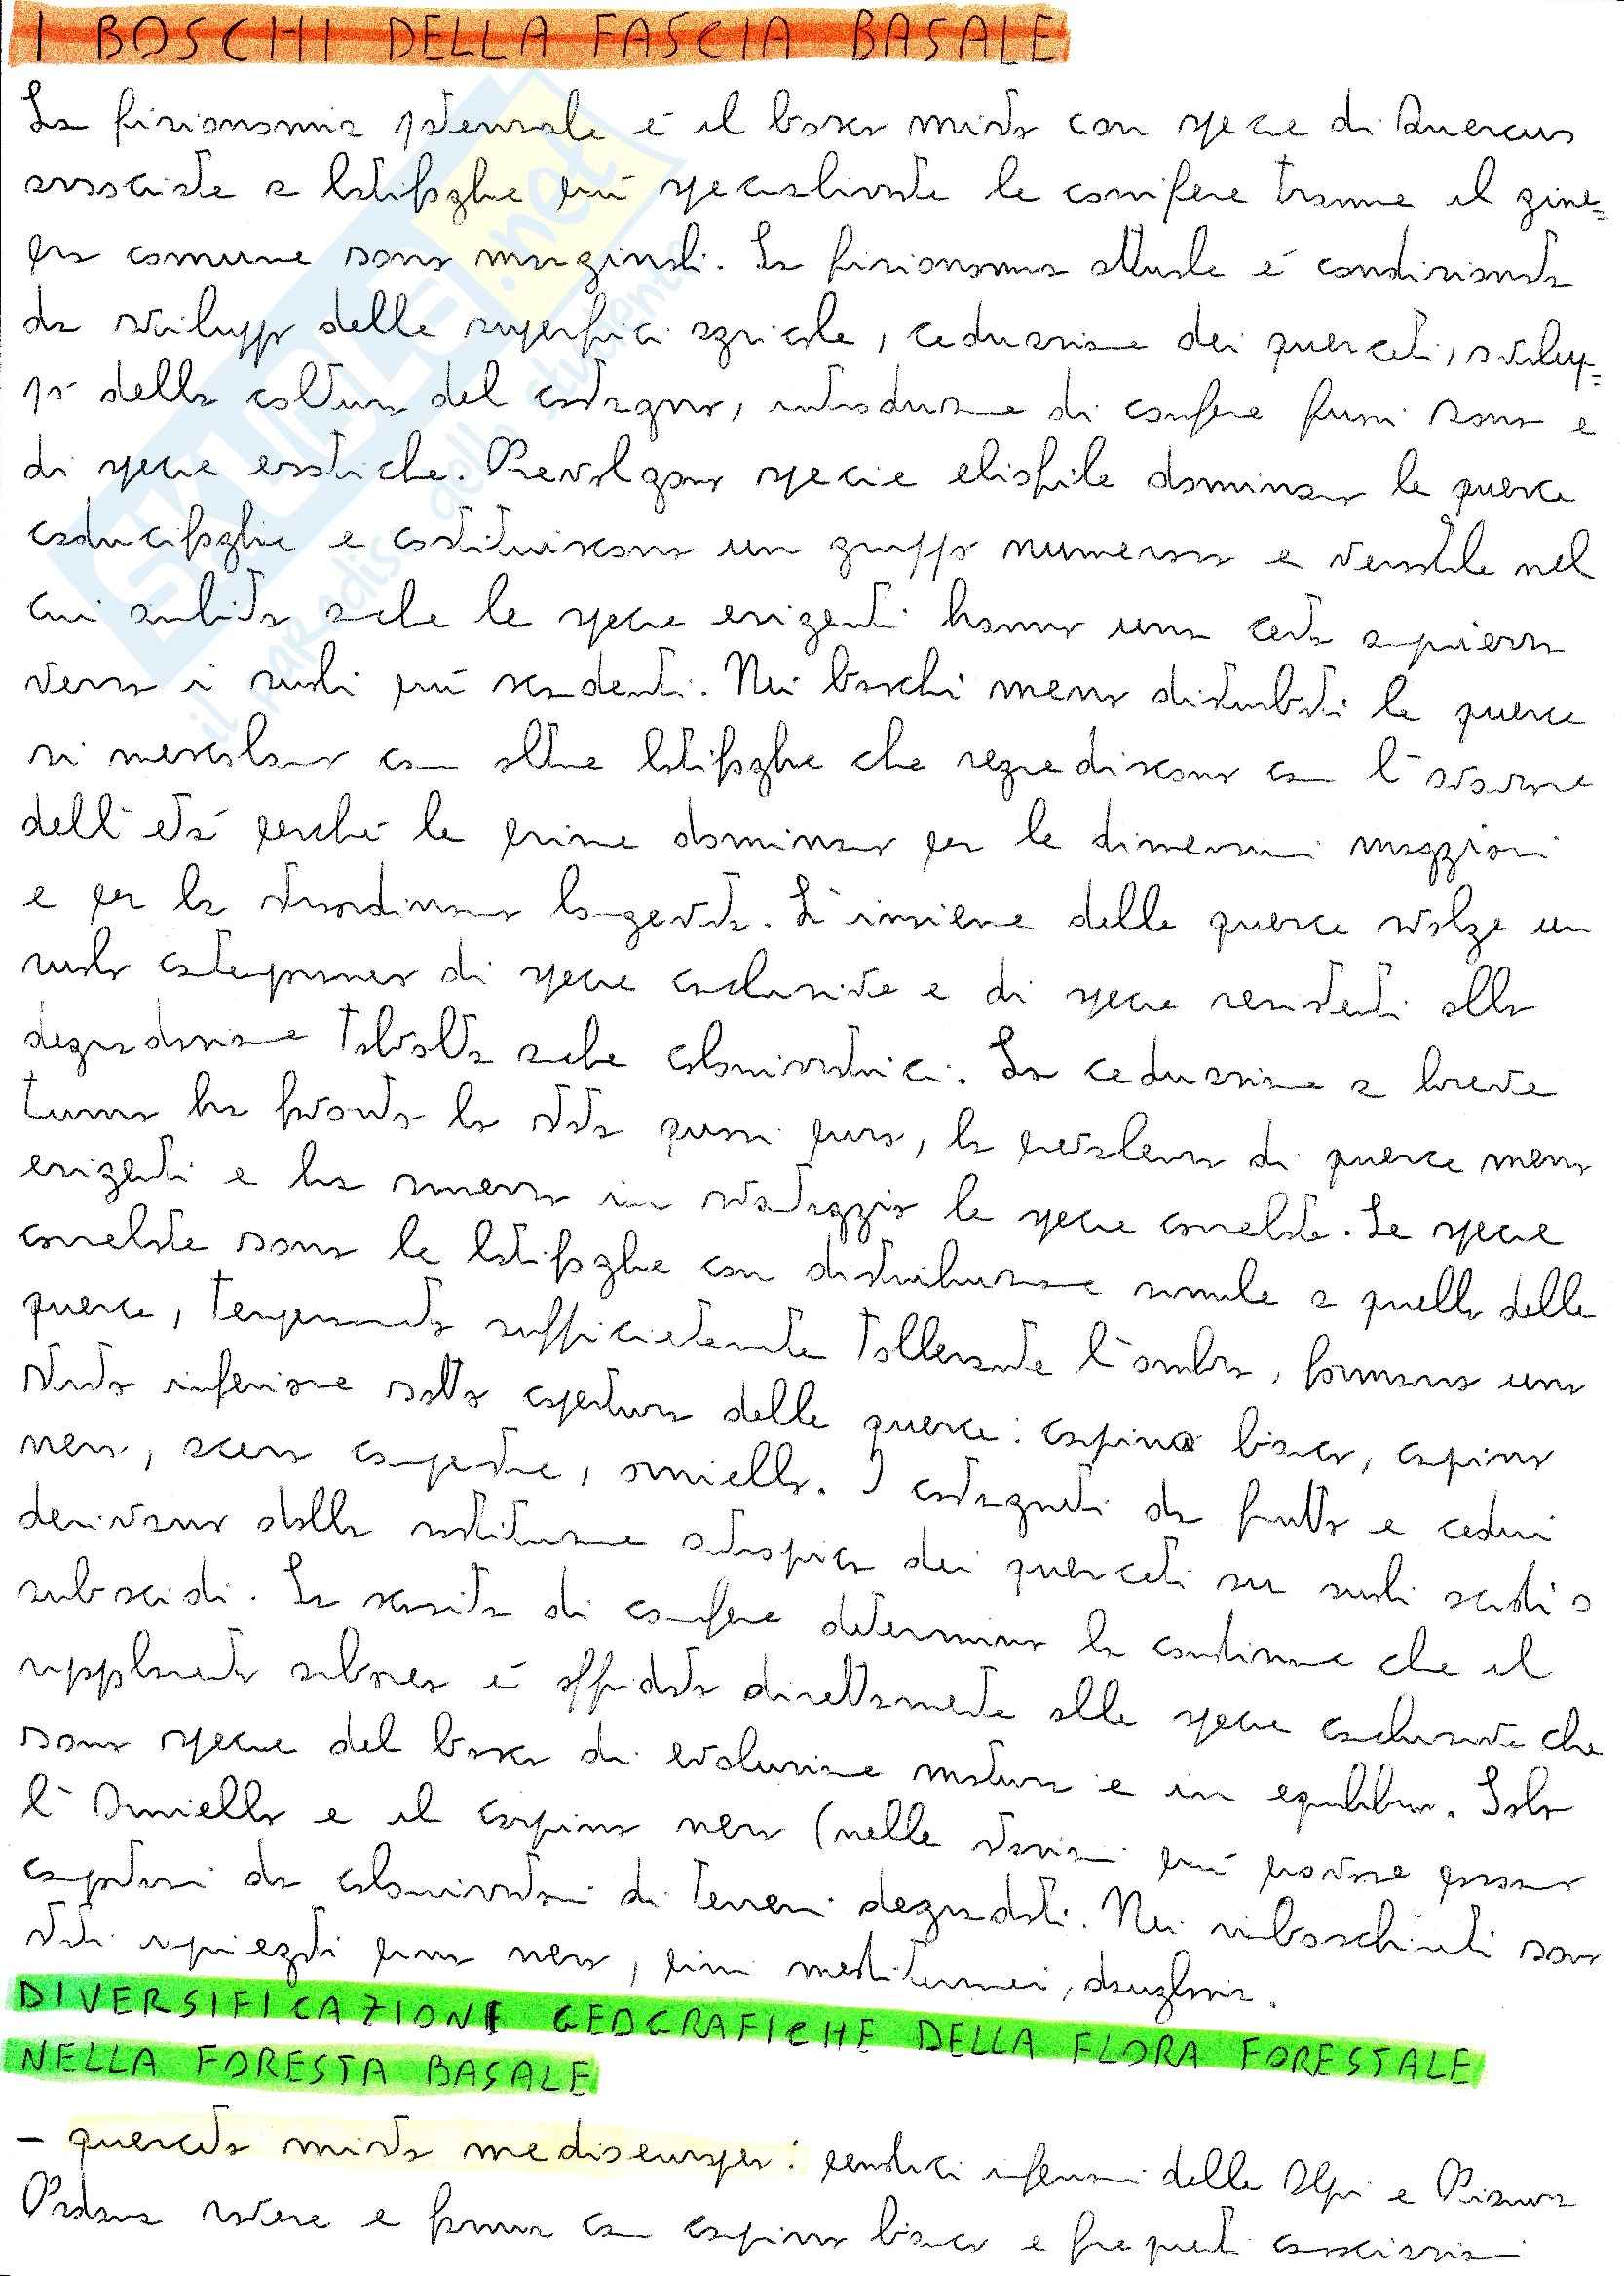 I BOSCHI DELLA FASCIA BASALE
La fisionomia potenziale è il bosco misto con specie di Quercus
associate a latifoglie più specializzate le conifere tranne il gine=
pro comune sono marginali. La fisionomia attuale è condizionata
da sviluppo delle superfici agricole, ceduazione dei querceti, svilup=
po della coltura del castagno, introduzione di conifere fuori zona e
di specie esotiche. Prevalgono specie eliofile dominano le querce
caducifoglie e costituiscono un gruppo numeroso e versatile nel
cui ambito anche le specie esigenti hanno una certa apertura
verso i suoli più scadenti. Nei boschi meno disturbati le querce
si mescolano con altre latifoglie che regrediscono con l'avanzare
dell'età perché le prime dominano per le dimensioni maggiori
e per la straordinaria longevità. L'insieme delle querce svolge un
ruolo contemporaneo di specie esclusive e di specie resistenti alla
degradazione talvolta anche colonizzatrici. La ceduazione a breve
turno ha favorito lo stato quasi puro, la prevalenza di querce meno
esigenti e ha messo in svantaggio le specie correlate. Le specie
correlate sono le latifoglie con distribuzione simile a quella delle
querce, temperamento sufficientemente tollerante l'ombra, formano uno
strato inferiore sotto copertura delle querce: carpino bianco, carpino
nero, acero campestre, orniello. I castagneti da frutto e cedui
derivano dalla sostituzione antropica dei querceti su suoli acidi o
subacidi. La scarsità di conifere determina la condizione che il
soprassuolo arboreo è affidato direttamente alle specie esclusive che
sono specie del bosco di evoluzione matura e in equilibrio. Solo
l'Orniello e il carpino nero (nelle stazioni più povere possono
comportarsi da colonizzatori di terreni degradati. Nei rimboschimenti sono
stati impiegati pino nero, pini mediterranei, douglasia.
DIVERSIFICAZIONI GEOGRAFICHE DELLA FLORA FORESTALE
NELLA FORESTA BASALE
- querceto misto medioeuropeo: pendici inferiori delle Alpi e Pianura
Padana rovere e farnia con carpino bianco e frequenti associazioni
SKUOLA.net
il paradiso dello studente